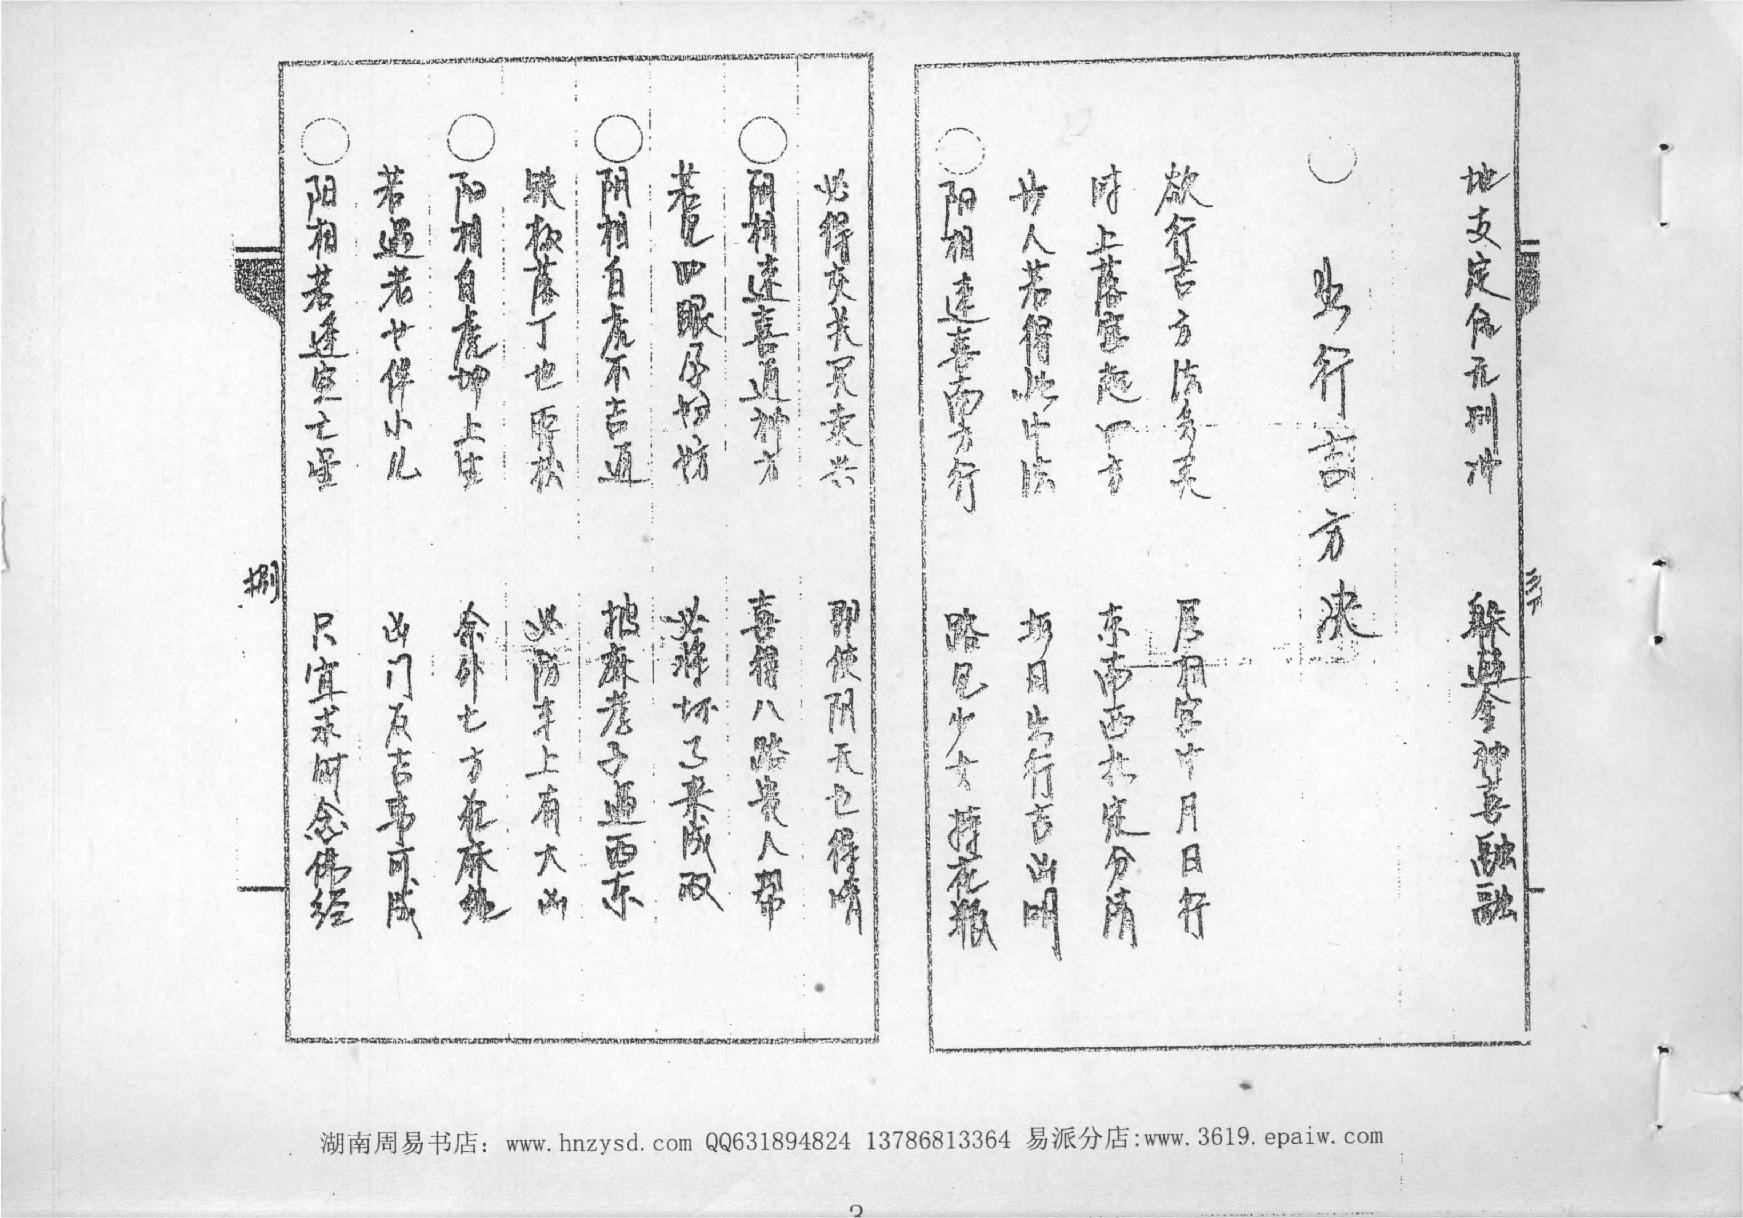 地支定食无刑冲 躲过金神喜融融
出行吉方决
欲行吉方法多灵 居相宫中月日行
时上落宫起四方 东南西北定分清
世人若得此中法 每日出行吉凶明
阳相逢喜南方行 路见少女持花瓶
必得交关买卖兴 即使阴天也得晴
阴相逢喜通神方 喜得八路贵人帮
若见四眼孕妇妨 必将坏了来成双
阴相白虎不吉通 披麻孝子遇西东
落丁地 必防车上有大凶
阳相白虎坤上生 余外七方犯麻绳
若遇老女伴小儿 出门反吉事可成
阳相若逢空亡星 只宜求财念佛经
捌
湖南周易书店：www.hnzysd.com QQ631894824 13786813364 易派分店:www.3619.epaiw.com
3